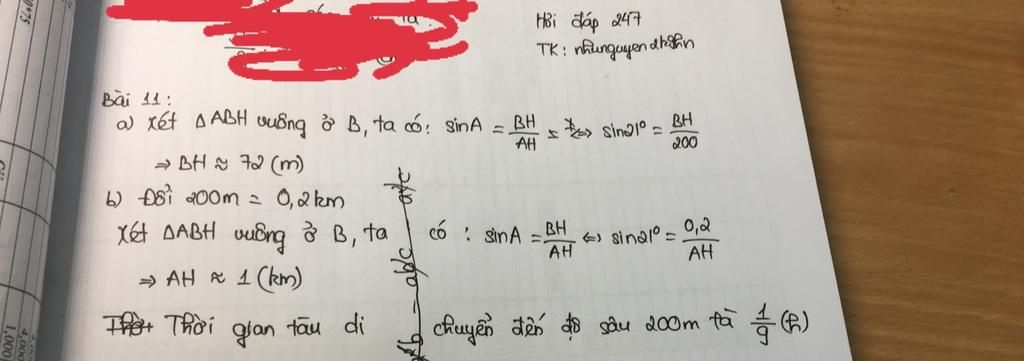 Hỏi đáp 247
TK: nhunguyendhshn
Bài 11:
a) Xét ΔABH vuông ở B, ta có: sinA = BH/AH ⇔ sin21° = BH/200
⇒ BH ≈ 72 (m)
b) Đổi 200m = 0,2km
Xét ΔABH vuông ở B, ta có: sinA = BH/AH ⇔ sin21° = 0,2/AH
⇒ AH ≈ 1 (km)
Thời gian tàu di chuyển đến độ sâu 200m là 1/9 (h)